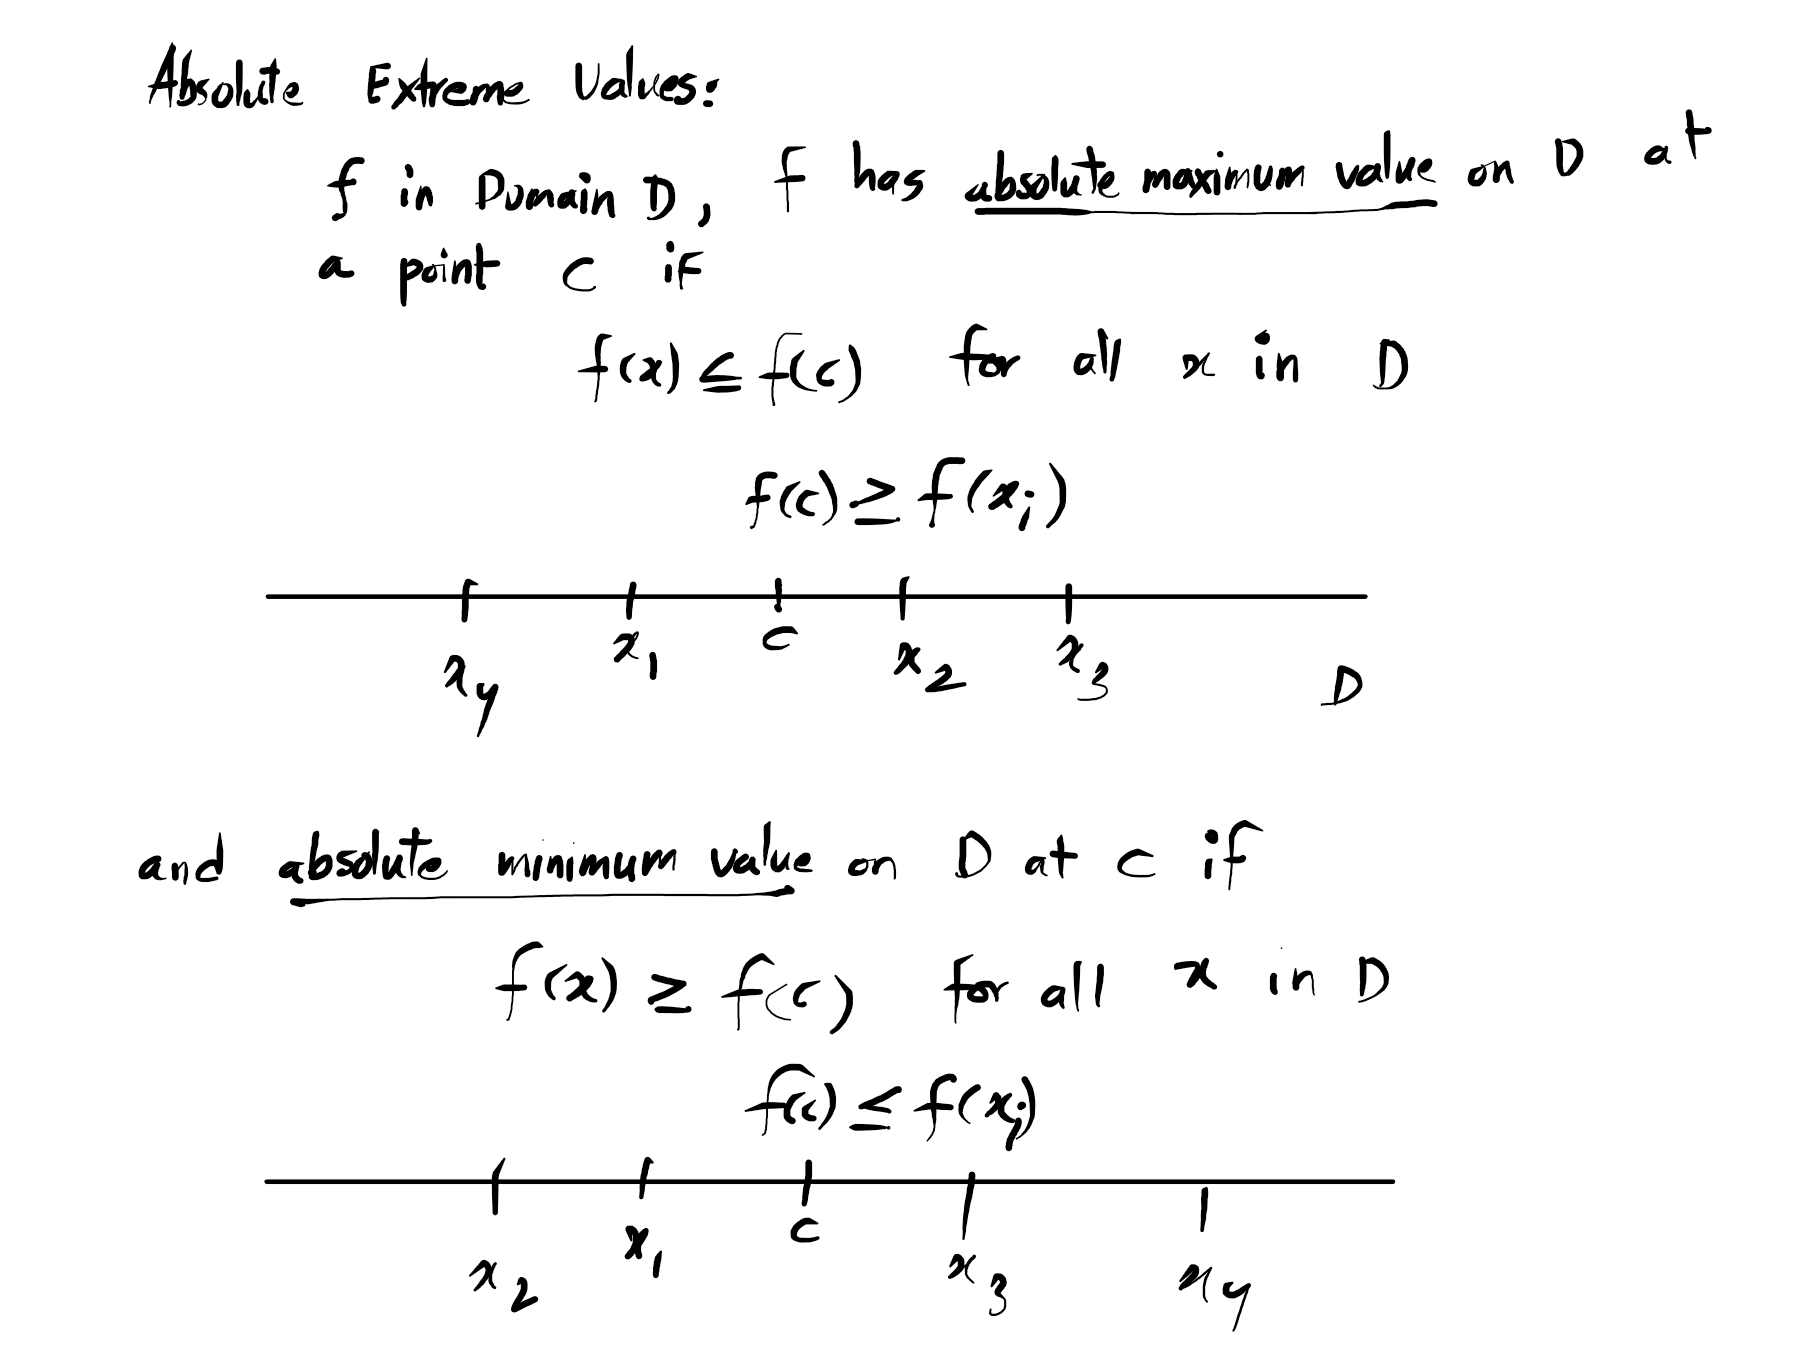 Absolute Extreme Values:
f in Domain D, f has absolute maximum value on D at
a point C if
f(x) ≤ f(c) for all x in D
f(c) ≥ f(xᵢ)
x₄ x₁ c x₂ x₃ D
and absolute minimum value on D at c if
f(x) ≥ f(c) for all x in D
f(c) ≤ f(xᵢ)
x₂ x₁ c x₃ x₄